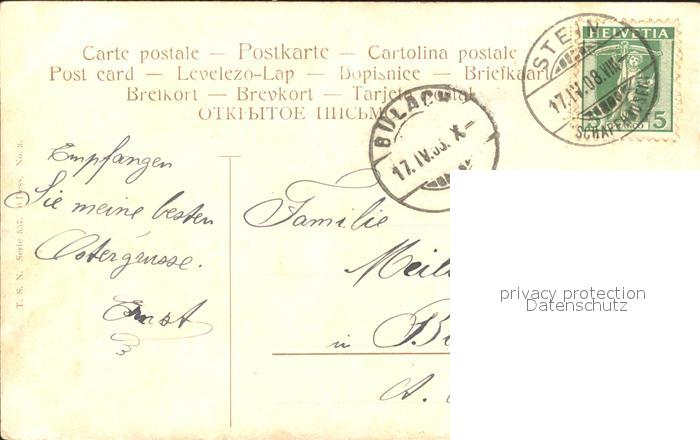 Carte postale — Postkarte — Cartolina postale
Post card — Levelezo-Lap — Dopisnice — Briefkaart
Brefkort — Brevkort — Tarjeta postal
ОТКРЫТОЕ ПИСЬМ
HELVETIA
5 5
STEIN
17.IV.08.VIII
SCHAFFHAUSEN
BÜLACH
17.IV.08.X
T. S. N. Serie 557. No. 8.
Empfangen
Sie meine besten
Ostergrüsse.
Ernst
Familie
Meil
in Bü
privacy protection
Datenschutz